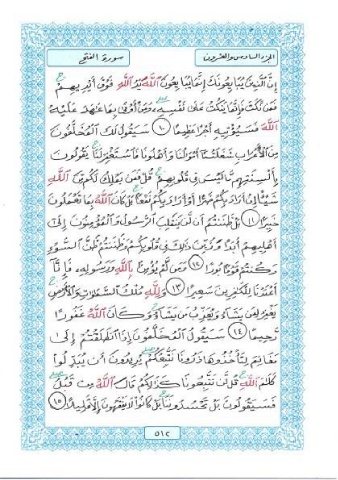 الجزء السادس والعشرون
سورة الفتح
إِنَّ الَّذِينَ يُبَايِعُونَكَ إِنَّمَا يُبَايِعُونَ اللَّهَ يَدُ اللَّهِ فَوْقَ أَيْدِيهِمْ
فَمَن نَّكَثَ فَإِنَّمَا يَنكُثُ عَلَى نَفْسِهِ وَمَنْ أَوْفَى بِمَا عَاهَدَ عَلَيْهُ
اللَّهَ فَسَيُؤْتِيهِ أَجْرًا عَظِيمًا ١٠ سَيَقُولُ لَكَ الْمُخَلَّفُونَ
مِنَ الْأَعْرَابِ شَغَلَتْنَا أَمْوَالُنَا وَأَهْلُونَا فَاسْتَغْفِرْ لَنَا يَقُولُونَ
بِأَلْسِنَتِهِم مَّا لَيْسَ فِي قُلُوبِهِمْ قُلْ فَمَن يَمْلِكُ لَكُم مِّنَ اللَّهِ
شَيْئًا إِنْ أَرَادَ بِكُمْ ضَرًّا أَوْ أَرَادَ بِكُمْ نَفْعًا بَلْ كَانَ اللَّهُ بِمَا تَعْمَلُونَ
خَبِيرًا ١١ بَلْ ظَنَنتُمْ أَن لَّن يَنقَلِبَ الرَّسُولُ وَالْمُؤْمِنُونَ إِلَى
أَهْلِيهِمْ أَبَدًا وَزُيِّنَ ذَلِكَ فِي قُلُوبِكُمْ وَظَنَنتُمْ ظَنَّ السَّوْءِ
وَكُنتُمْ قَوْمًا بُورًا ١٢ وَمَن لَّمْ يُؤْمِن بِاللَّهِ وَرَسُولِهِ فَإِنَّا
أَعْتَدْنَا لِلْكَافِرِينَ سَعِيرًا ١٣ وَلِلَّهِ مُلْكُ السَّمَاوَاتِ وَالْأَرْضِ
يَغْفِرُ لِمَن يَشَاءُ وَيُعَذِّبُ مَن يَشَاءُ وَكَانَ اللَّهُ غَفُورًا
رَّحِيمًا ١٤ سَيَقُولُ الْمُخَلَّفُونَ إِذَا انطَلَقْتُمْ إِلَى
مَغَانِمَ لِتَأْخُذُوهَا ذَرُونَا نَتَّبِعْكُمْ يُرِيدُونَ أَن يُبَدِّلُوا
كَلَامَ اللَّهِ قُل لَّن تَتَّبِعُونَا كَذَلِكُمْ قَالَ اللَّهُ مِن قَبْلُ
فَسَيَقُولُونَ بَلْ تَحْسُدُونَنَا بَلْ كَانُوا لَا يَفْقَهُونَ إِلَّا قَلِيلًا ١٥
٥١٢